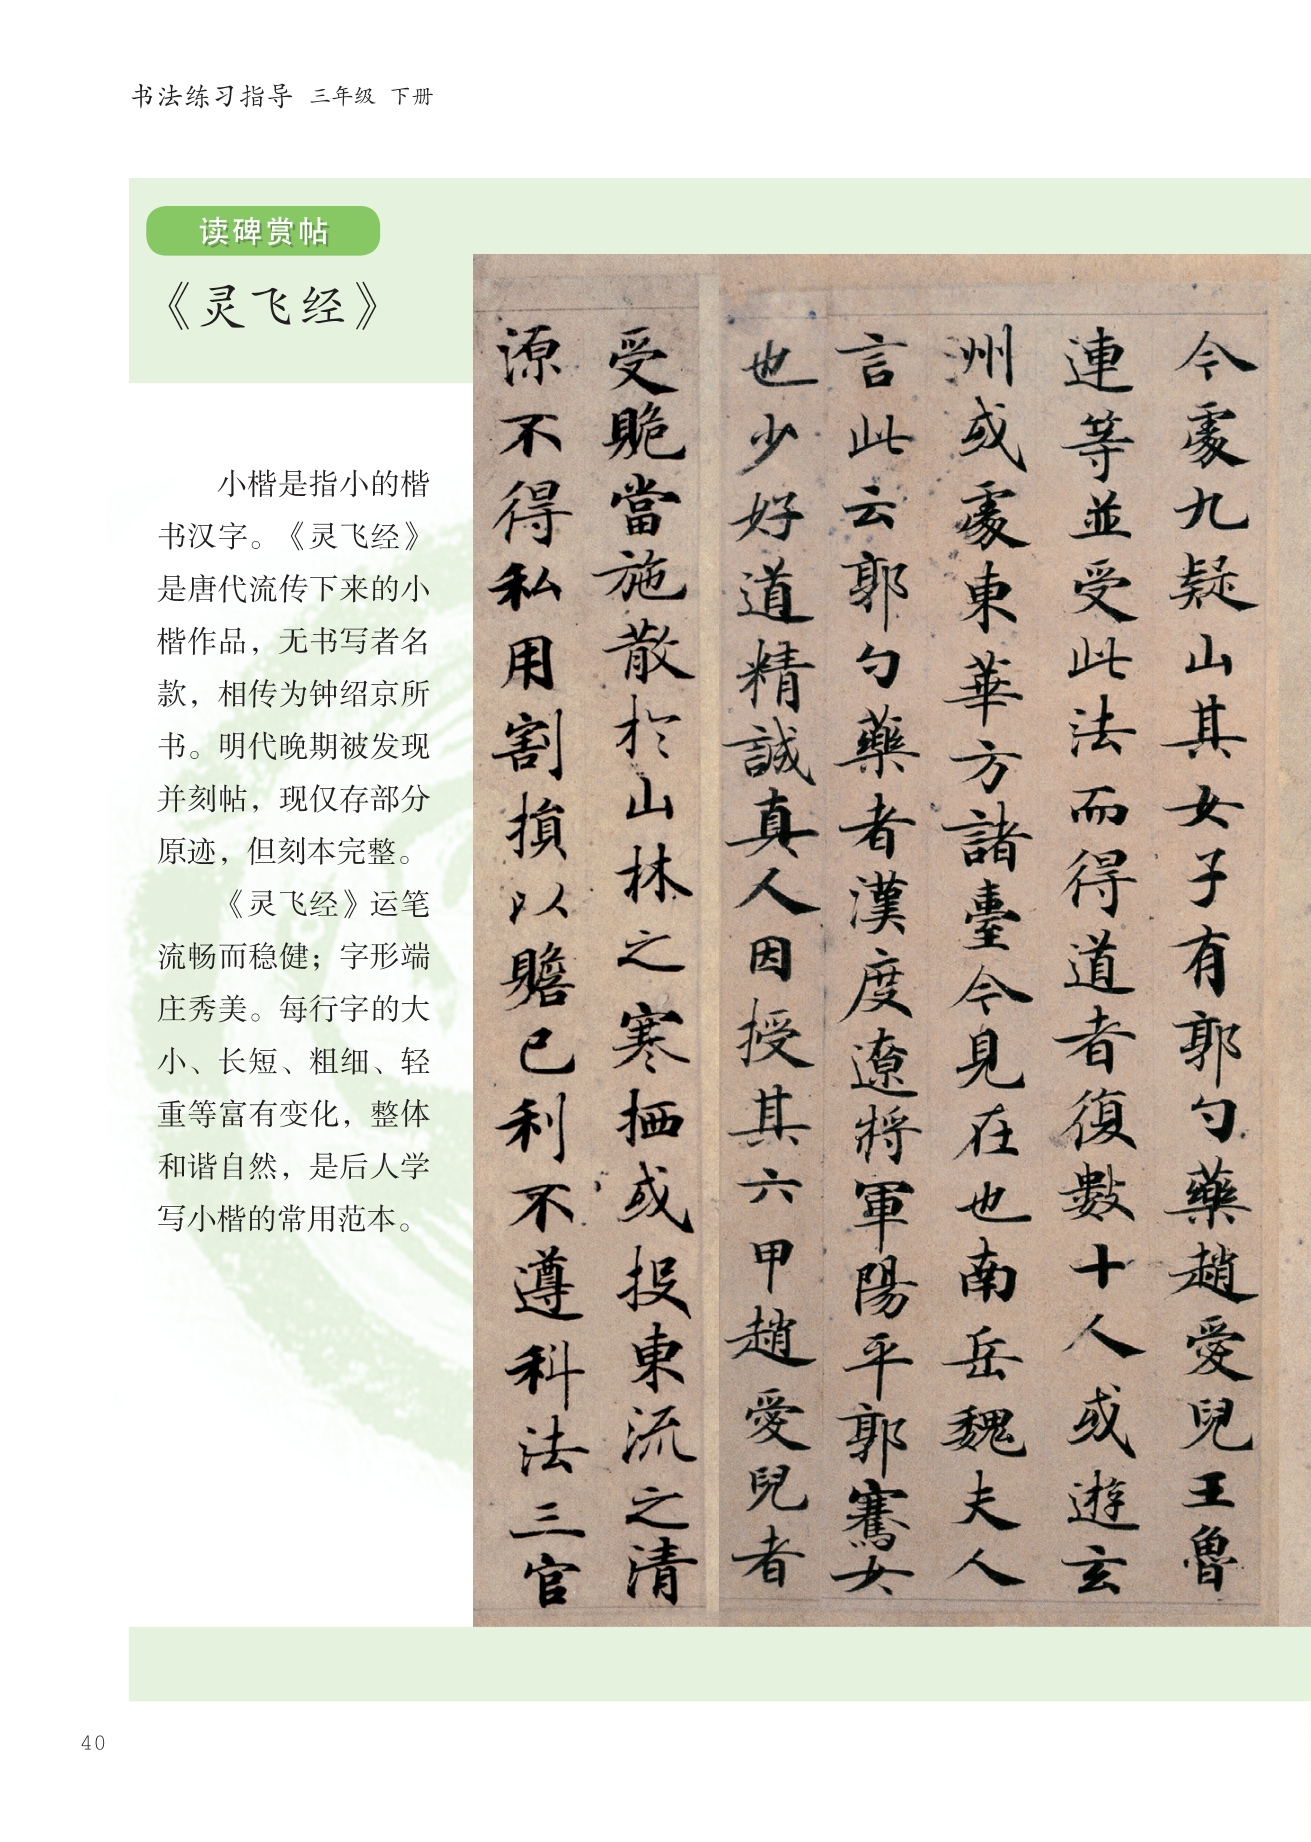 书法练习指导 三年级 下册
读碑赏帖
《灵飞经》
小楷是指小的楷
书汉字。《灵飞经》
是唐代流传下来的小
楷作品，无书写者名
款，相传为钟绍京所
书。明代晚期被发现
并刻帖，现仅存部分
原迹，但刻本完整。
《灵飞经》运笔
流畅而稳健；字形端
庄秀美。每行字的大
小、长短、粗细、轻
重等富有变化，整体
和谐自然，是后人学
写小楷的常用范本。
今處九疑山其女子有郭勺藥趙愛兒王魯
連等並受此法而得道者復數十人或遊玄
洲或處東華方諸臺今見在也南岳魏夫人
言此云郭勺藥者漢度遼將軍陽平郭騫女
也少好道精誠真人因授其六甲趙愛兒者
受貤當施散於山林之寒栖或投東流之清
源不得私用割損以贍己利不遵科法三官
40